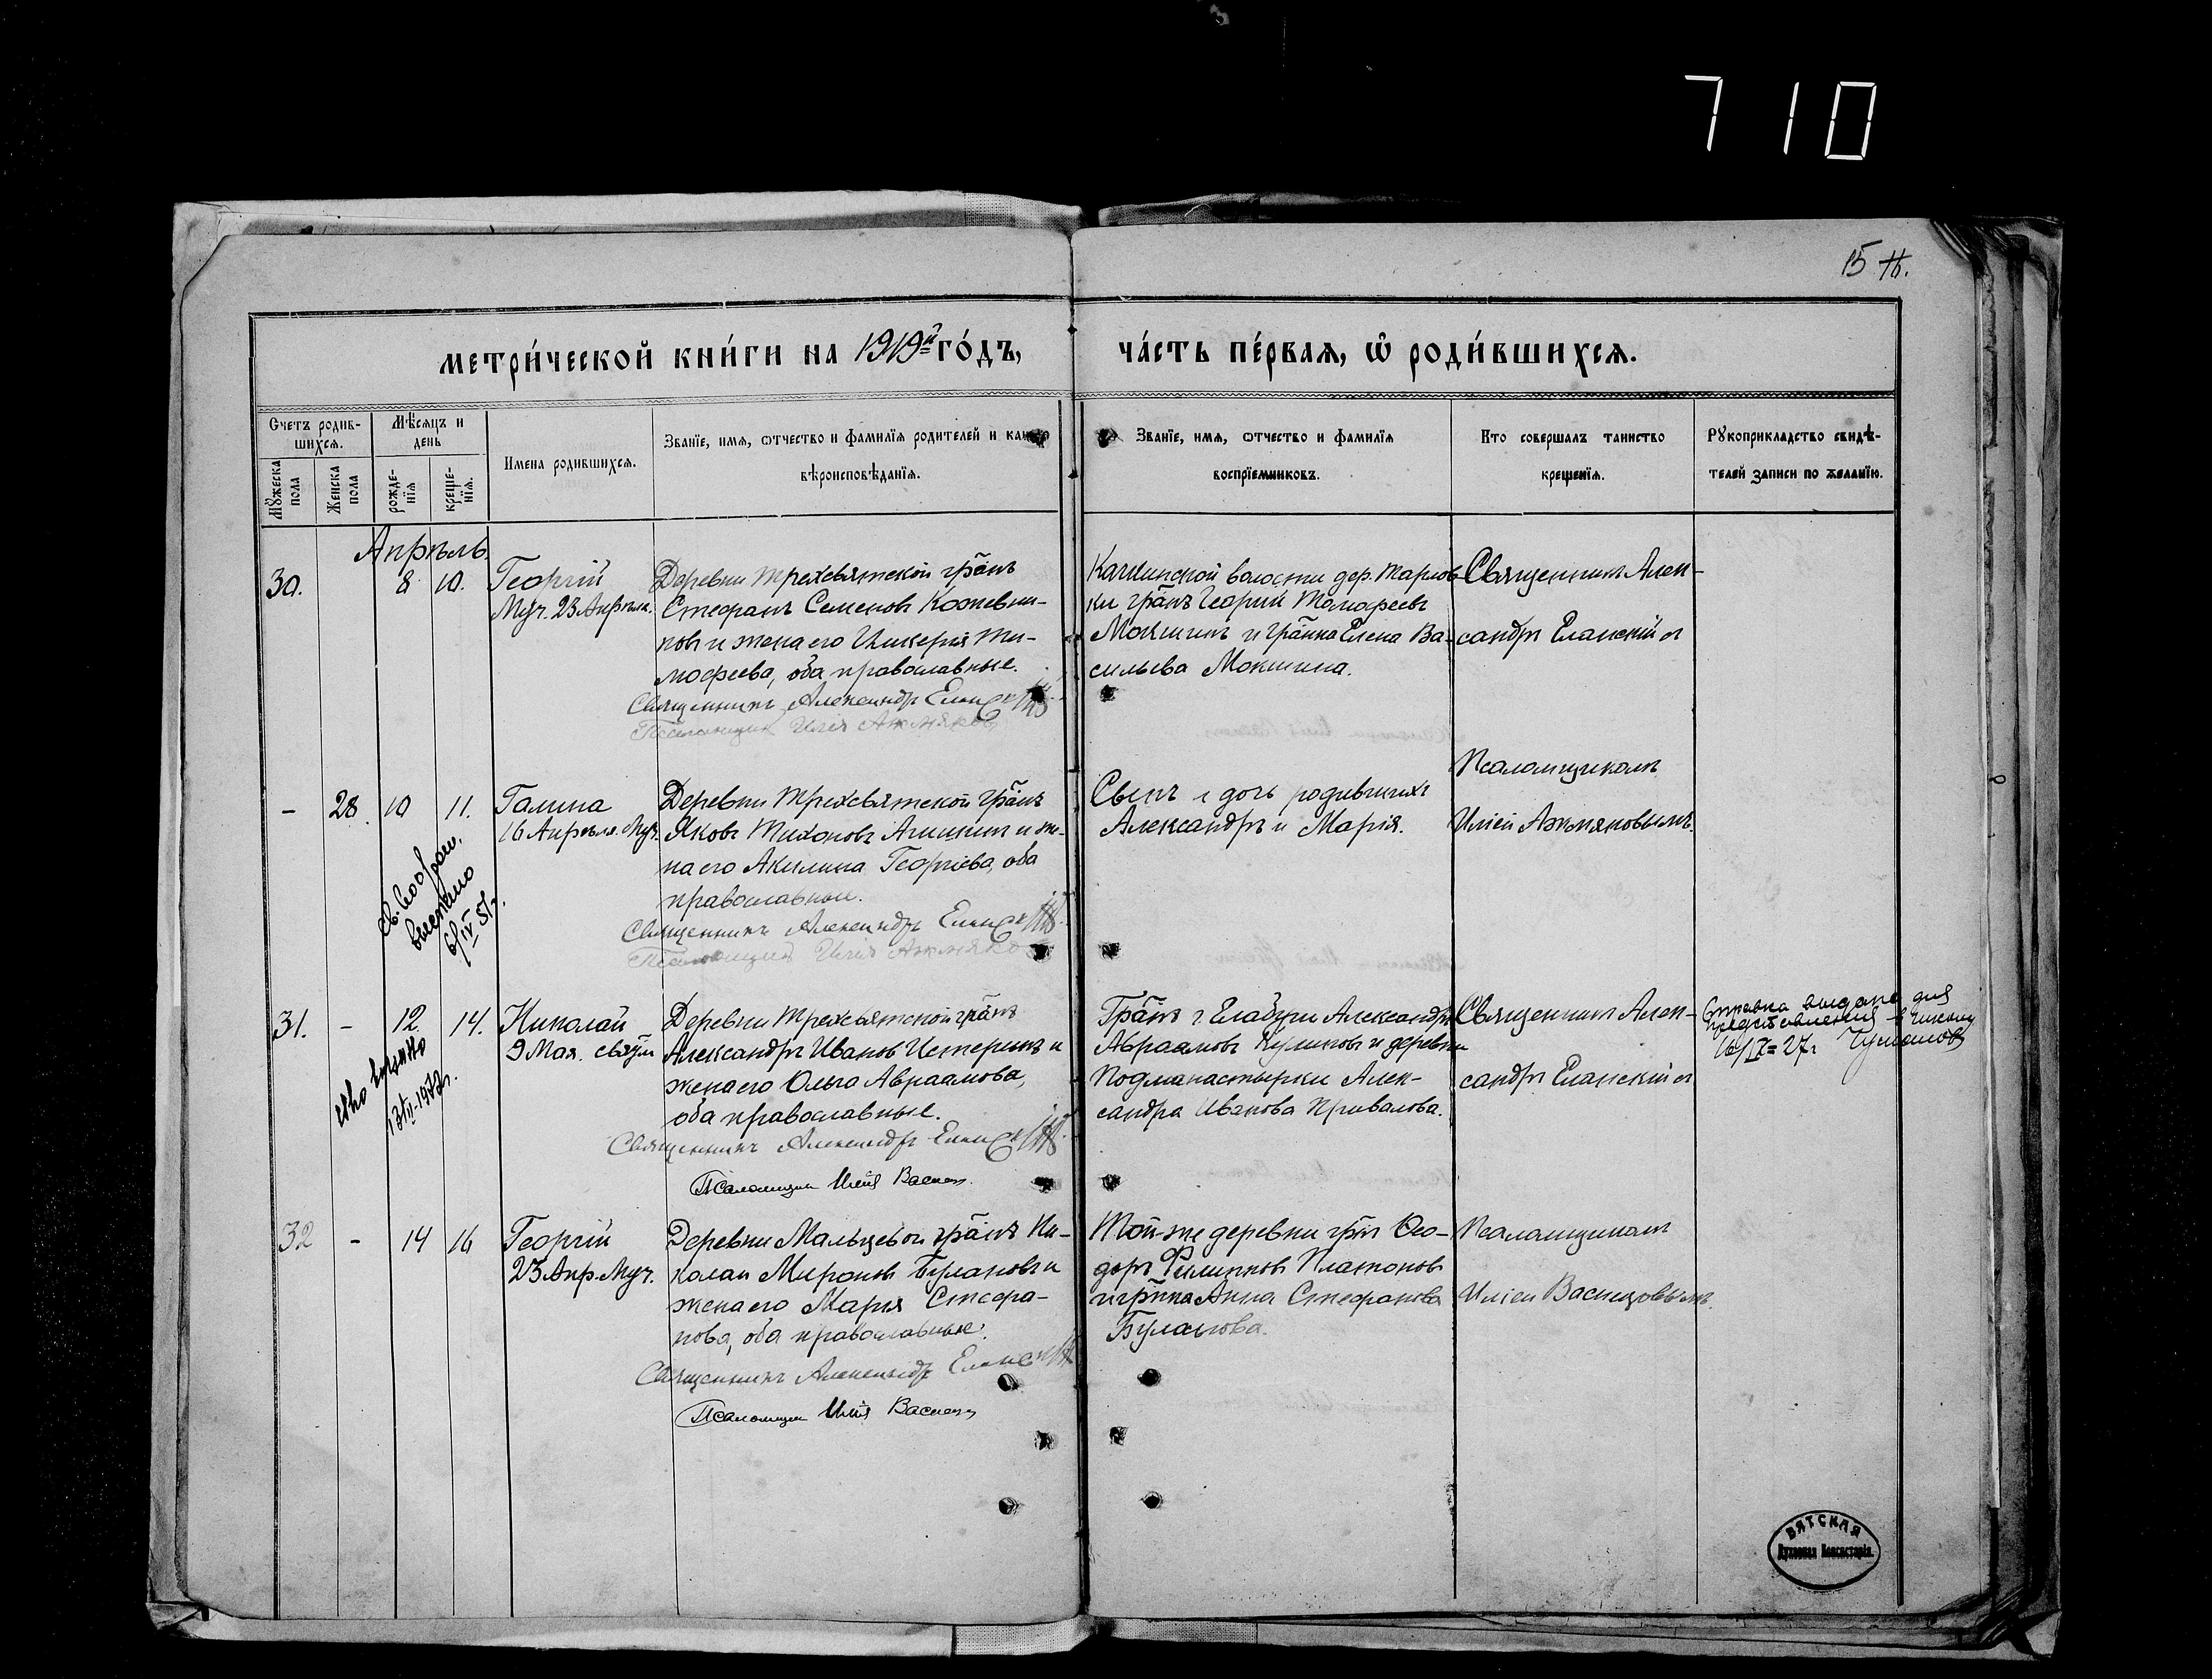 710
15
МЕТРИ́ЧЕСКОЙ КНИ́ГИ НА 1919й ГО́ДЪ,
ЧА́СТЬ ПЕ́РВАѦ, Ѽ РОДИ́ВШИХСѦ.
Счетъ родив-
шихся.
Мѣсяцъ и
день
Мужеска
пола
Женска
пола
рожде-
нїя
креще-
нїя.
Имена родившихся.
Званїе, имя, ѿчество и фамилїя родителей и какого
вѣроисповѣданїя.
Званїе, имя, ѿчество и фамилїя
воспрїемниковъ.
Кто совершалъ таинство
крещенїя.
Рукоприкладство свидѣ-
телей записи по желанїю.
Апрѣль.
30.
8
10.
Георгій
Муч. 23 Апрѣля.
Деревни Трехсвятской гра̃нъ
Стефанъ Семеновъ Кожевни-
ковъ и жена его Гликерія Ти-
мофеева, оба православные.
Священникъ Александръ Еланскій
Псаломщикъ Илія Ажмяковъ
Качкинской волости дер. Тарлов-
ки гра̃нъ Георгий Тимофеевъ
Мокшинъ и гра̃нка Елена Ва-
сильева Мокшина.
Священникъ Алек-
сандръ Еланскій съ
Псаломщикомъ
Иліей Ажмяковымъ.
-
28.
10
11.
Галина
16 Апрѣля. Муч.
Деревни Трехсвятской гра̃нъ
Яковъ Тихоновъ Агишинъ и же-
на его Акилина Георгіева, оба
православные.
Священникъ Александръ Еланскій
Псаломщикъ Илія Ажмяковъ
Сынъ и дочь родившихъ
Александръ и Марія.
выслано
6/IV 57.
31.
-
12.
14.
Николай
9 Мая. свят̃ля
Деревни Трехсвятской гра̃нъ
Александръ Ивановъ Истеринъ и
жена его Ольга Авраамова,
оба православные.
Священникъ Александръ Еланскій
Псаломщикъ Илія Васнец
13/II-1972г.
Гра̃нъ г. Елабуги Александръ
Авраамовъ Куликовъ и деревни
Подманастырки Алек-
сандра Иванова Привалова.
Священникъ Алек-
сандръ Еланскій съ
Справка выдана для
представления в школу
16/IX=27г
32
-
14
16
Георгій
23 Апр. Муч.
Деревни Мальцевой гра̃нъ Ни-
колай Мироновъ Булановъ и
жена его Марія Стефа-
нова, оба православные.
Священникъ Александръ Еланскій
Псаломщикъ Илія Васнец
Той-же деревни гр̃нъ Ѳео-
доръ Филипповъ Платоновъ
и гр̃нка Анна Стефанова
Буланова.
Псаломщикомъ
Иліей Васнецовымъ.
ВЯТСКАЯ
Духовная Консисторія.